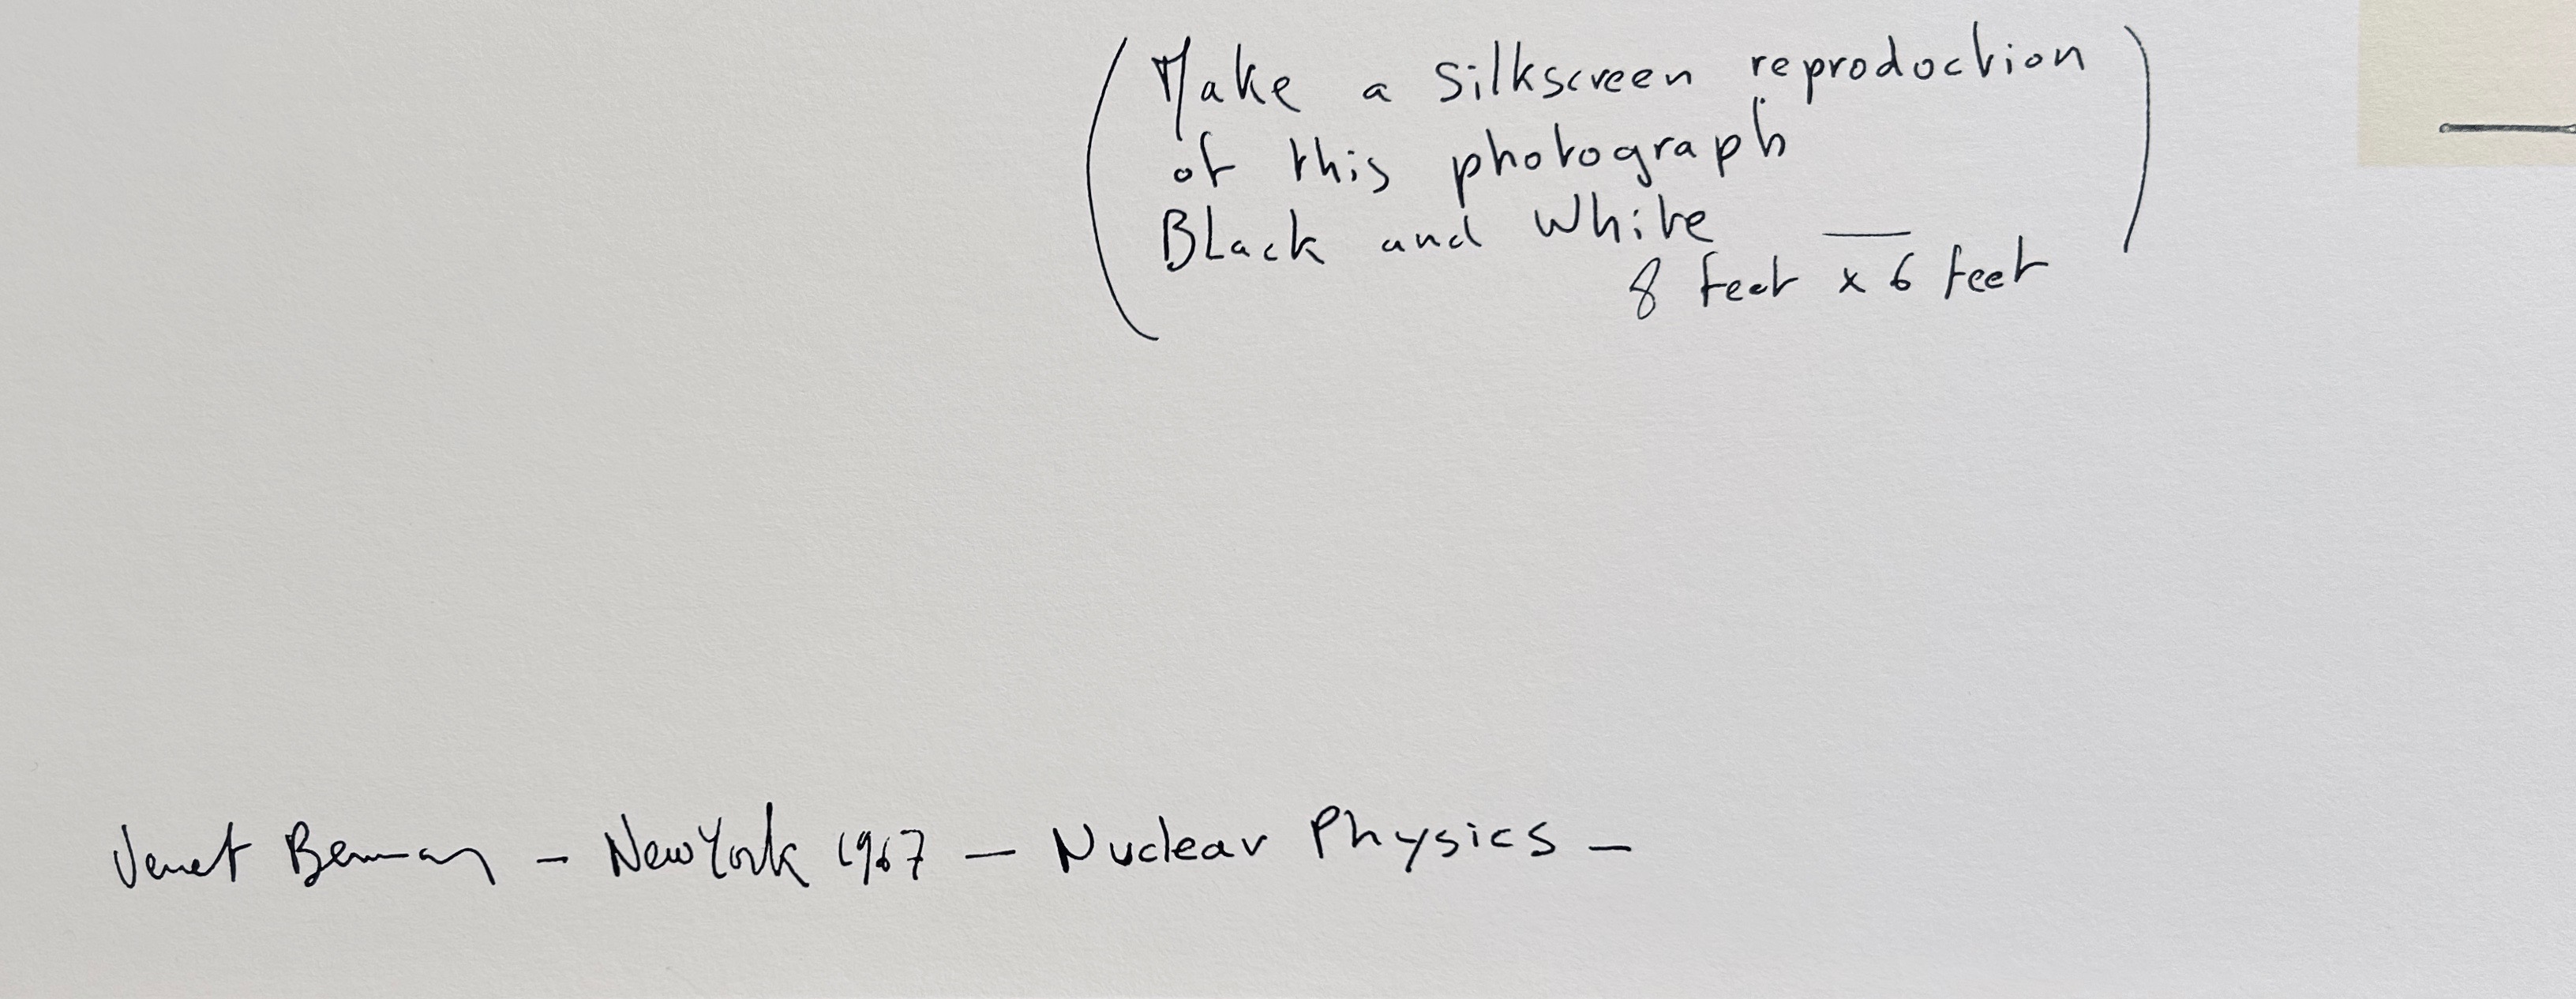 (Make a silkscreen reproduction
of this photograph
Black and white —
8 feet x 6 feet)
Venet Bernar - New York 1967 - Nuclear Physics -